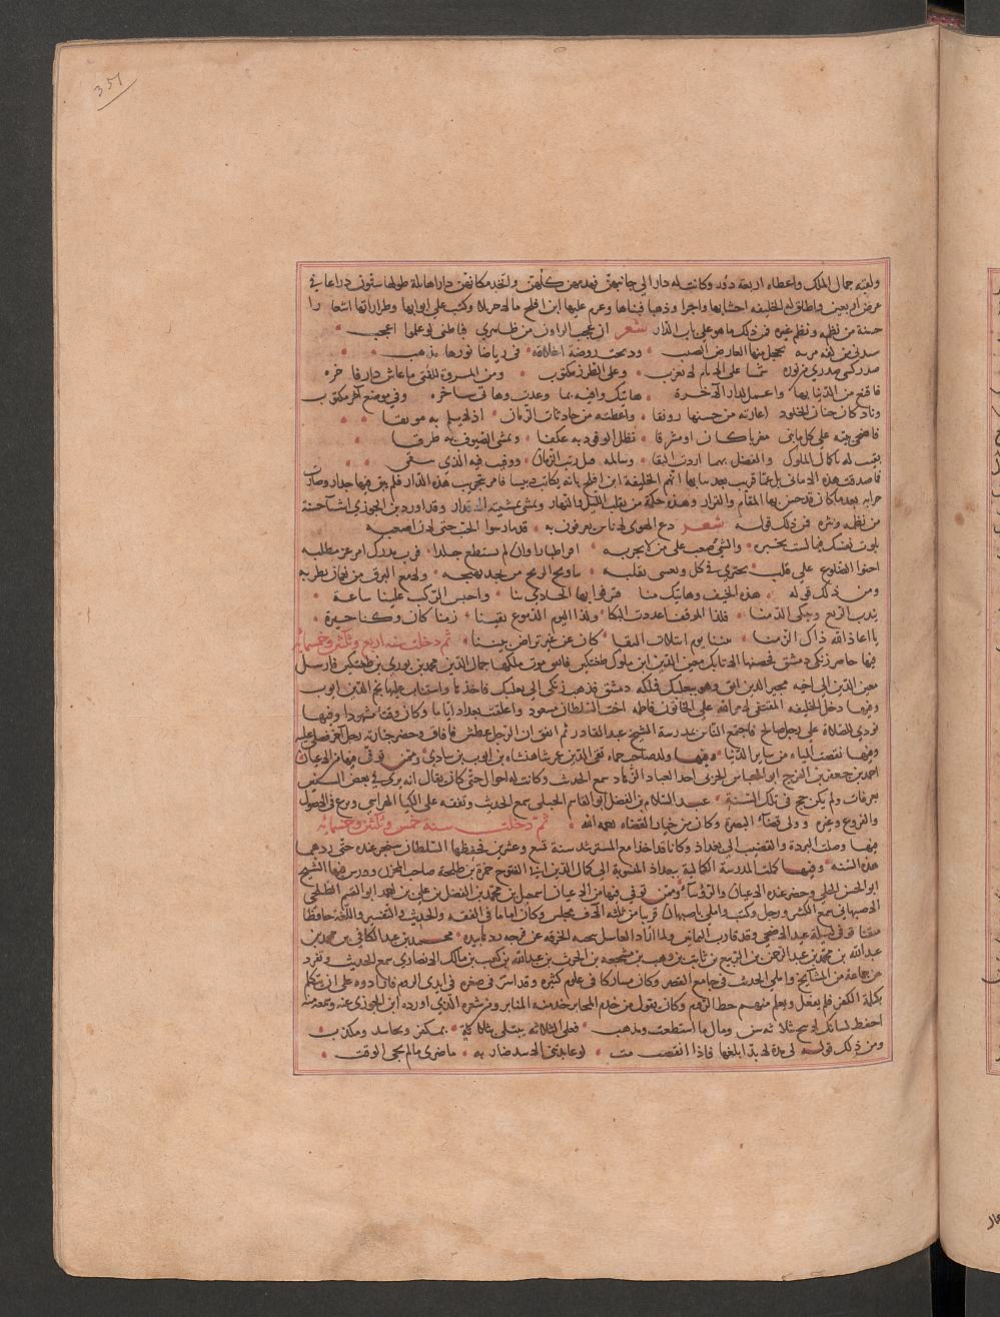 351
ولقبه جمال الملك واعطاه اربعة دور وكانت له دار الى جانبهن فهدمهن كلهن واتخذ مكانهن دارا هائلة طولها ستون ذراعا في
عرض اربعين واطلق له الخليفة اخشابها واجرها وذهبا فبناها وغرم عليها ابن افلح مالا جزيلا وكتب على ابوابها وطرازاتها اشعارا
حسنة من نظمه ونظم غيره فمن ذلك ما هو على باب الدار شعر ان عجب الراؤن من ظاهري فباطني لو علموا اعجب
شيدني من كفه مزنة يخجل منها العارض الصيب ودبجت روضة اخلاقه في رياضا نورها مذهب
صدر كسى صدري من نوره شمسا على الايام لا تغرب وعلى الطرز مكتوب ومن المروة للفتى ما عاش دار فاخرة
فاقنع من الدنيا بها واعمل لدار الاخرة هاتيك وافية بما وعدت وهاتي ساخرة وفي موضع اخر مكتوب
وناد كان جنان الخلود اعارته من حسنها رونقا واعطته من حادثات الزمان ان لا يلم به موبقا
فاضحى يتيه على كل ما بنى مغربا كان او مشرقا تظل الوفود به عكفا وتمسي الضيوف به طرقا
بقيت له يا كمال الملوك والفضل مهما اردت البقا وسالمه فيك ريب الزمان ووقيت فيه الذي يتقى
فما صدقت هذه الاماني بل عما قريب بعد سا بها اتهم الخليفة ابن افلح بانه يكاتب دبيسا فامر بتخريب هذه الدار فلم يبق فيها جدار وصارت
خرابة بعد ما كان قد حسن بها المقام والقرار وهذه حكمة من يقلب الليل والنهار وتمشي بمشيته الاقدار وقد اورد ابن الجوزي اشيا حسنة
من نظمه ونثره فمن ذلك قوله شعر دع الهوى لاناس يعرفون به قد مارسوا الحب حتى لان اصعبه
بلوت نفسك فيما لست تخبره والشي صعب على من لا يجربه افن اصطبارا وان لم تستطع جلدا فرب مدرك امر عز مطلبه
احنوا الضلوع على قلب يحيرني في كل يوم ويعييني تقلبه تناوح الريح من نجد يهيجه ولامع البرق من نعمان يطربه
ومن ذلك قوله هذه الخيف وهاتيك منا فترفق ايها الحادي بنا واحبس الركب علينا ساعة
نندب الربع ونبكي الدمنا فلذا الموقف اعددت البكا ولذا اليوم الدموع تقتنا زمنا كان وكنا جيرة
يا اعاذ الله ذاك الزمنا بيننا يوم اثيلات النقا كان عن غير تراض بيننا ثم دخلت سنة اربع وثلاثين وخمسمائة
فيها حاصر زنكي دمشق فحصنها الاتابك معين الدين ابن مملوك طغتكين فاتفق موت ملكها جمال الدين محمد بن بوري بن طغتكين فارسل
معين الدين الى اخيه مجير الدين ابق وهو ببعلبك فملكه دمشق فذهب زنكي الى بعلبك فاخذها واستناب عليها نجم الدين ايوب
وفيها دخل الخليفة المقتفي لامر الله على الخاتون فاطمة اخت السلطان مسعود واغلقت بغداد اياما وكان وقتا مشهودا وفيها
نودي للصلاة على رجل صالح فاجتمع الناس بمدرسة الشيخ عبد القادر ثم اتفق ان الرجل عطس فافاق وحضرت جنازة رجل اخر فصلي عليه
وفيها نقصت المياه من ساير الدنيا وفيها ولد صاحب حماه تقي الدين عمر شاهنشاه بن ايوب بن شادي وممن توفي فيها من الاعيان
احمد بن جعفر بن الفرج ابو العباس الحربي احد العباد الزهاد سمع الحديث وكانت له احوال حتى كان يقال انه يرى في بعض السنين
بعرفات ولم يكن حج في تلك السنة عبد السلام بن الفضل ابو القاسم الجيلي سمع الحديث وتفقه على الكيا الهراسي وبرع في الاصول
والفروع وغيره وولي قضاء البصرة وكان من خيار القضاة رحمه الله ثم دخلت سنة خمس وثلاثين وخمسمائة
فيها وصلت البردة والقضيب الى بغداد وكانا قد اخذا مع المسترشد سنة تسع وعشرين فحفظها السلطان سنجر عنده حتى ردهما
هذه السنة وفيها كملت المدرسة الكمالية ببغداد المنسوبة الى كمال الدين ابي الفتوح حمزة بن طلحة صاحب المخزن ودرس فيها الشيخ
ابو الحسن الحلي وحضر عنده الاعيان والرؤساء وممن توفي فيها من الاعيان اسمعيل بن محمد بن الفضل بن علي بن احمد ابو القسم الطلحي
الاصبهاني سمع الكثير ورحل وكتب واملى باصبهان قريبا من ثلثة الاف مجلس وكان اماما في الفقه والحديث والتفسير واللغة حافظا
متقنا توفي ليلة عيد الاضحى وقد قارب الثمانين ولما اراد الغاسل تنحية الخرقة عن فرجه ردها بيده محمد بن عبد الباقي بن محمد بن
عبد الله بن محمد بن عبد الرحمن بن الربيع بن ثابت بن وهب بن مشجعة بن الحرث بن عبد الله بن كعب بن مالك الانصاري سمع الحديث وتفرد
عن جماعة من المشايخ واملى الحديث في جامع القصر وكان مشاركا في علوم كثيرة وقد اسر في صغره في ايدي الروم فارادوه على ان يتكلم
بكلمة الكفر فلم يفعل وتعلم منهم خط الروم وكان يقول من خدم المحابر خدمته المنابر ومن شعره الذي اورده ابن الجوزي عنه وسمعه منه
احفظ لسانك لا تبح بثلاثة سن ومال ما استطعت ومذهب فعلى الثلاثة تبتلى بثلاثة بمكفر وبحاسد ومكذب
ومن ذلك قوله لي مدة لا بد ابلغها فاذا انقضت مت لو عاندتني الاسد ضارية ما ضرني ما لم يجئ الوقت